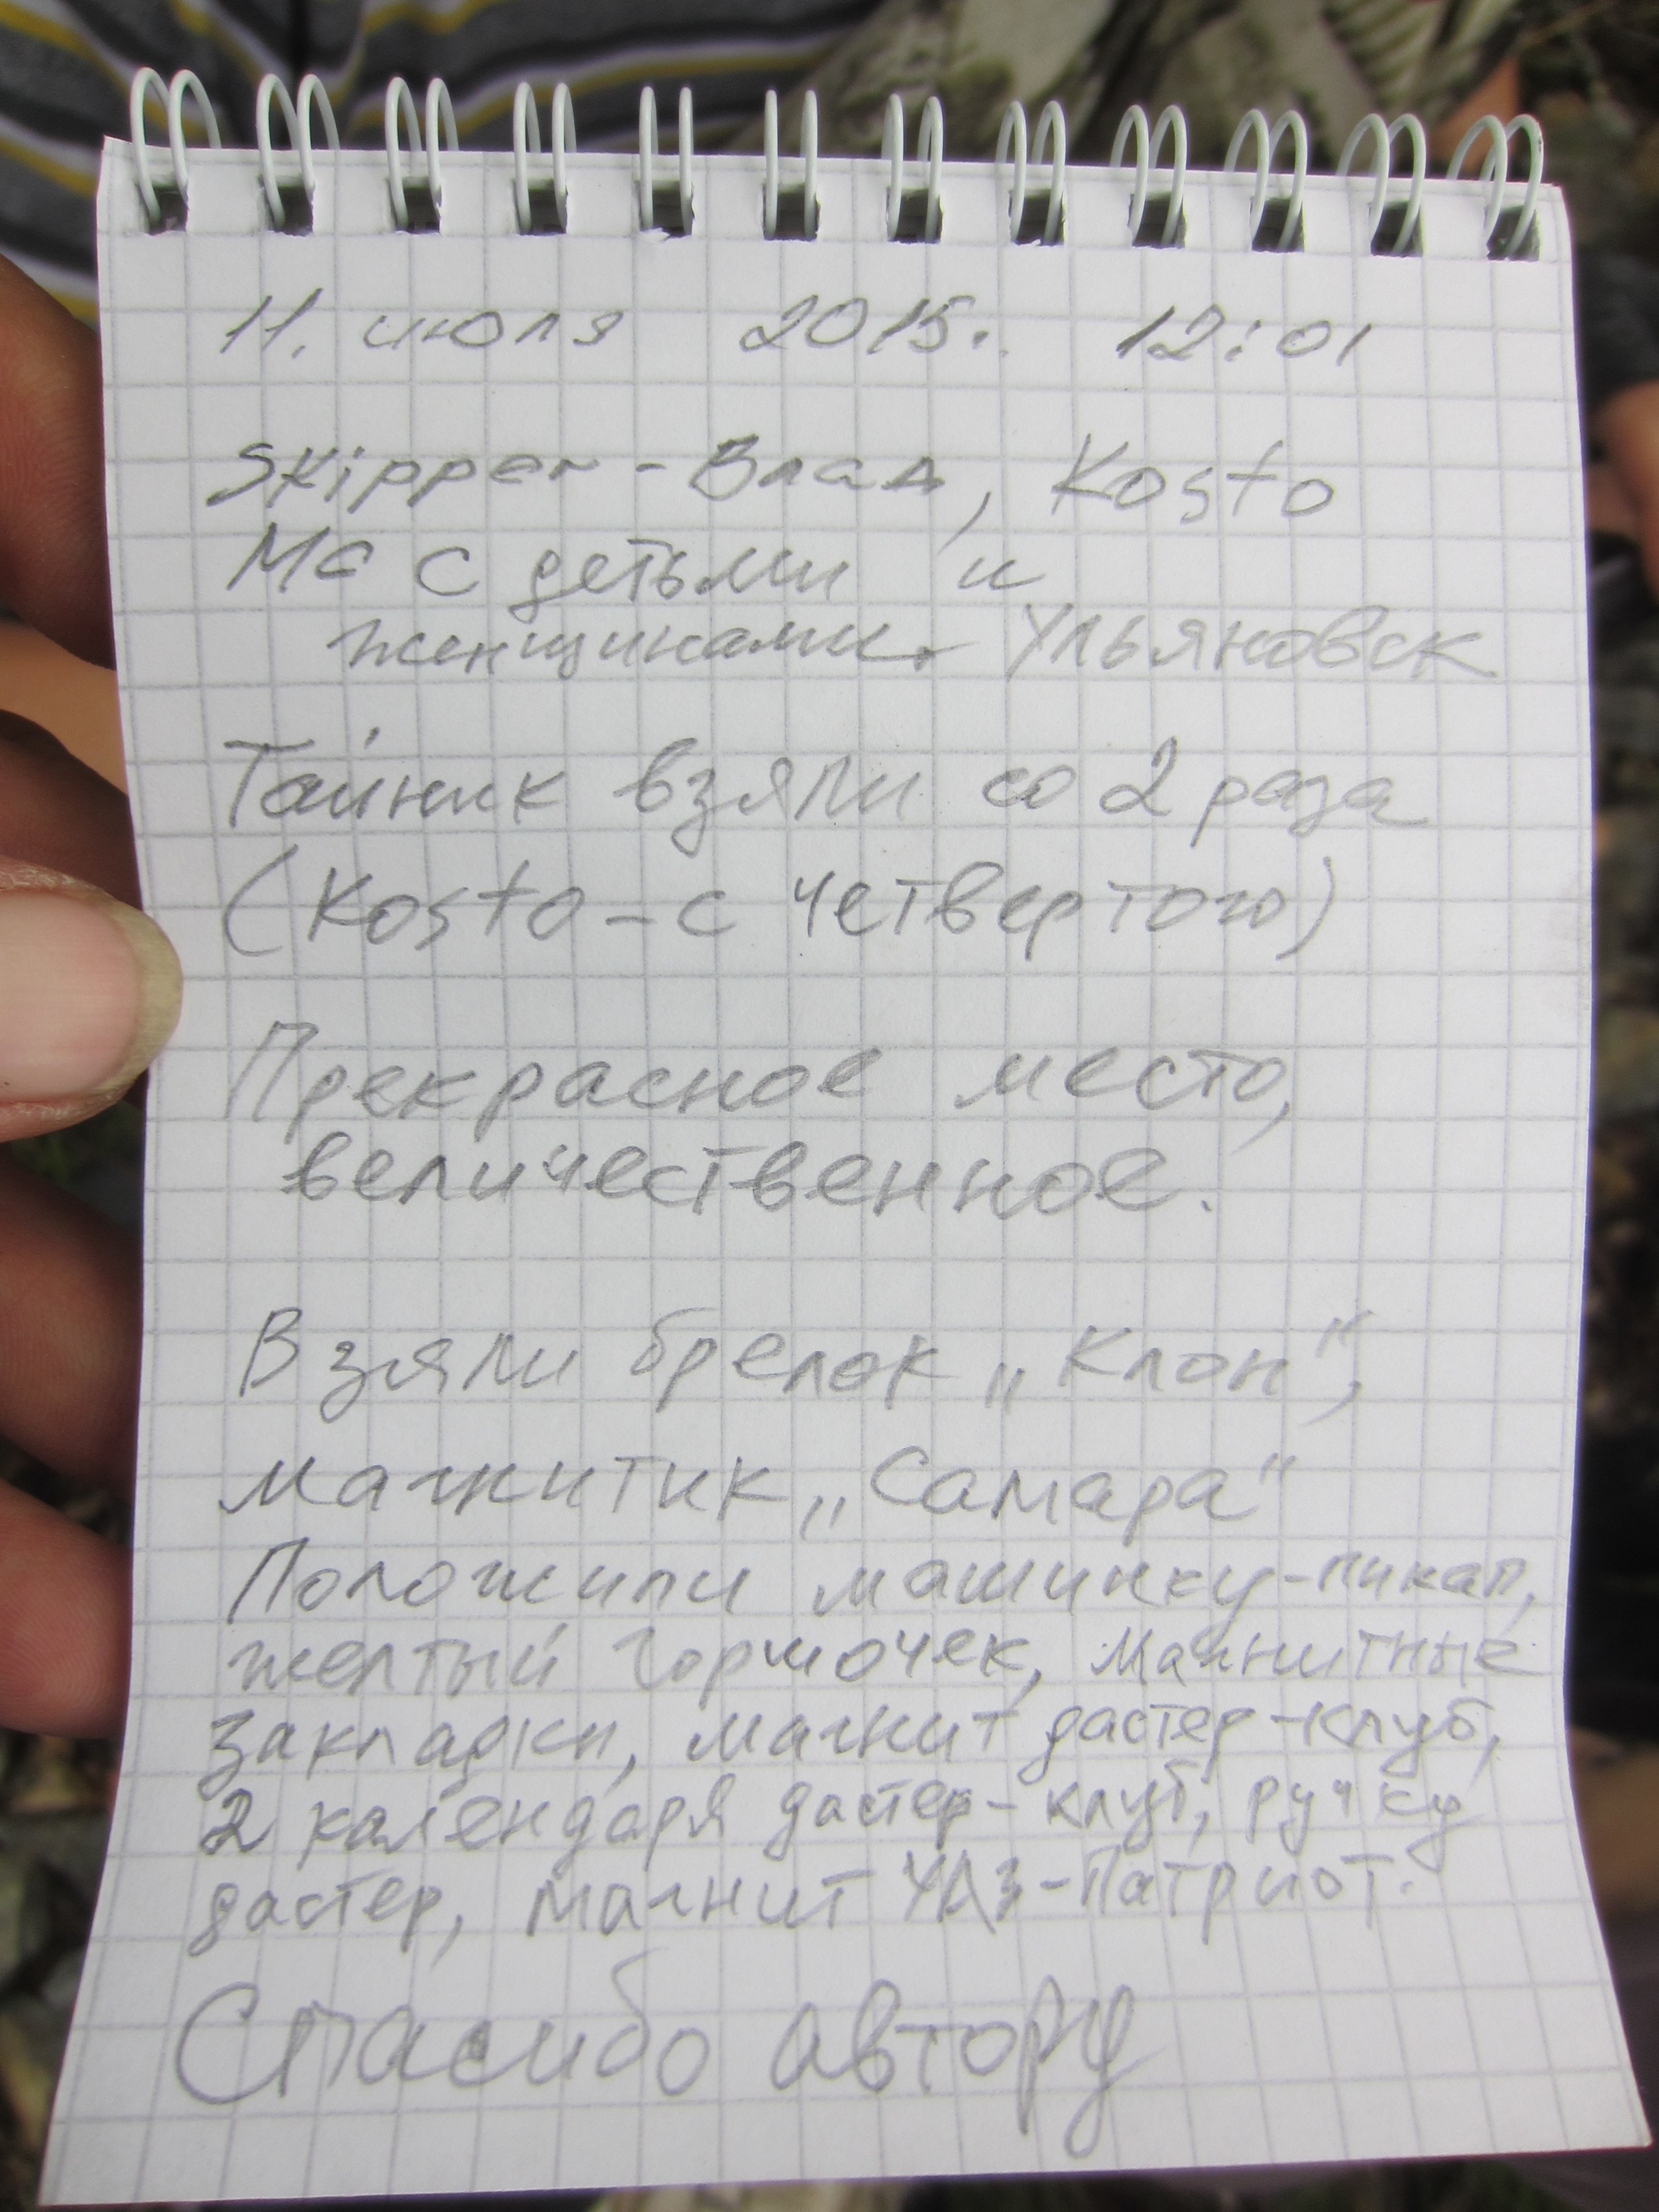 11. июля 2015. 12:01
Skipper - Влад, Kosto
МС с детьми и
женщинами. Ульяновск
Тайник взяли со 2 раза
(Kosto – с четвертого)
Прекрасное место,
величественное.
Взяли брелок „Клон“,
магнитик „Самара“
Положили машинку-пикап,
желтый горшочек, магнитные
закладки, магнит дастер-клуб,
2 календаря дастер-клуб, ручку
дастер, магнит УАЗ-Патриот.
Спасибо автору